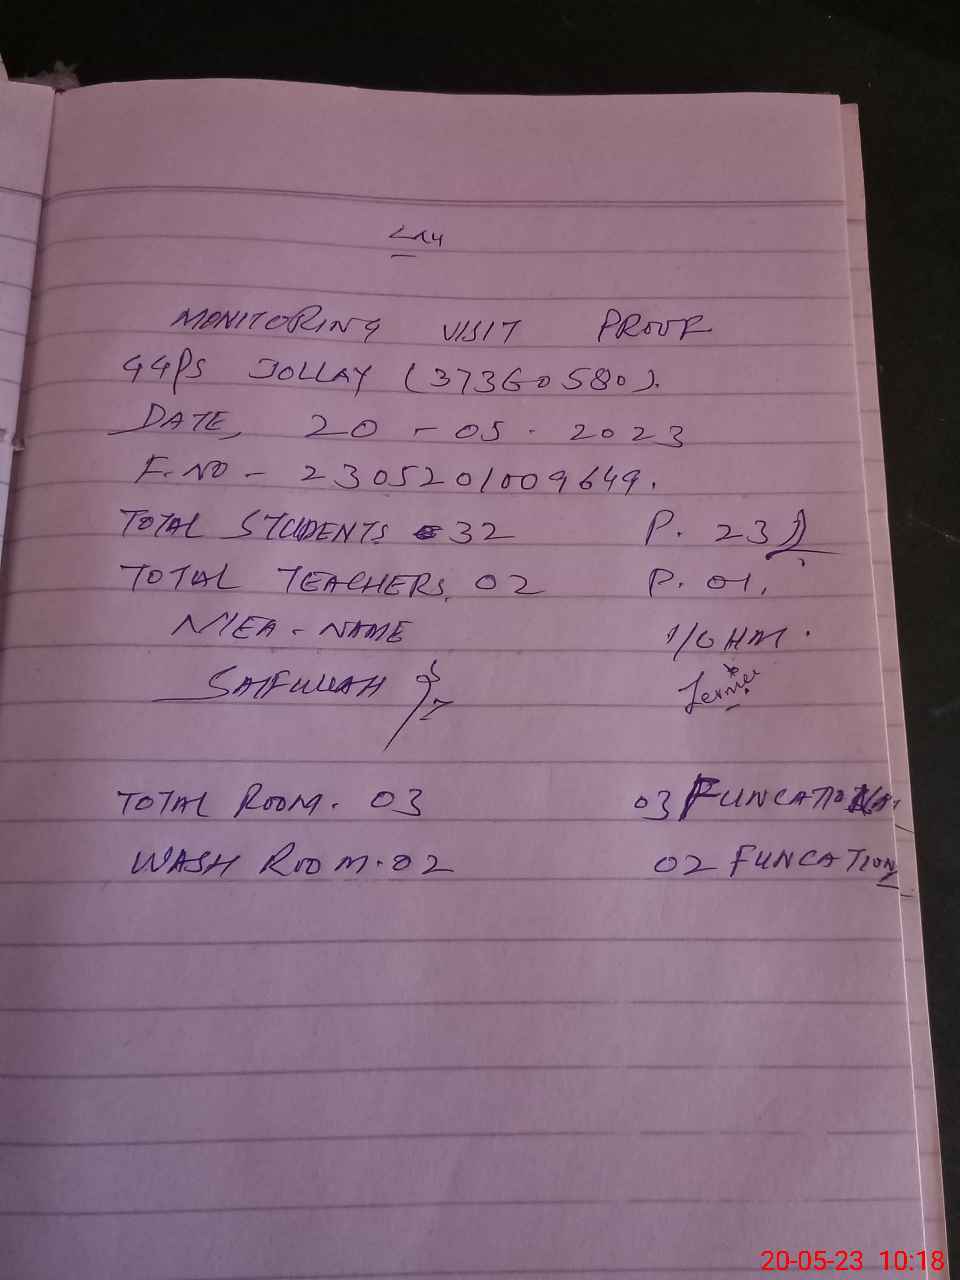 MONITORING VISIT PROOF
GGPS JOLLAY (37360580).
DATE, 20-05-2023
F.NO - 2305201009649.
TOTAL STUDENTS 32 P. 23
TOTAL TEACHERS. 02 P. 01.
MEA-NAME I/C HM.
SAIFULLAH
TOTAL ROOM. 03 03 FUNCATIONAL
WASH ROOM. 02 02 FUNCATION
20-05-23 10:18